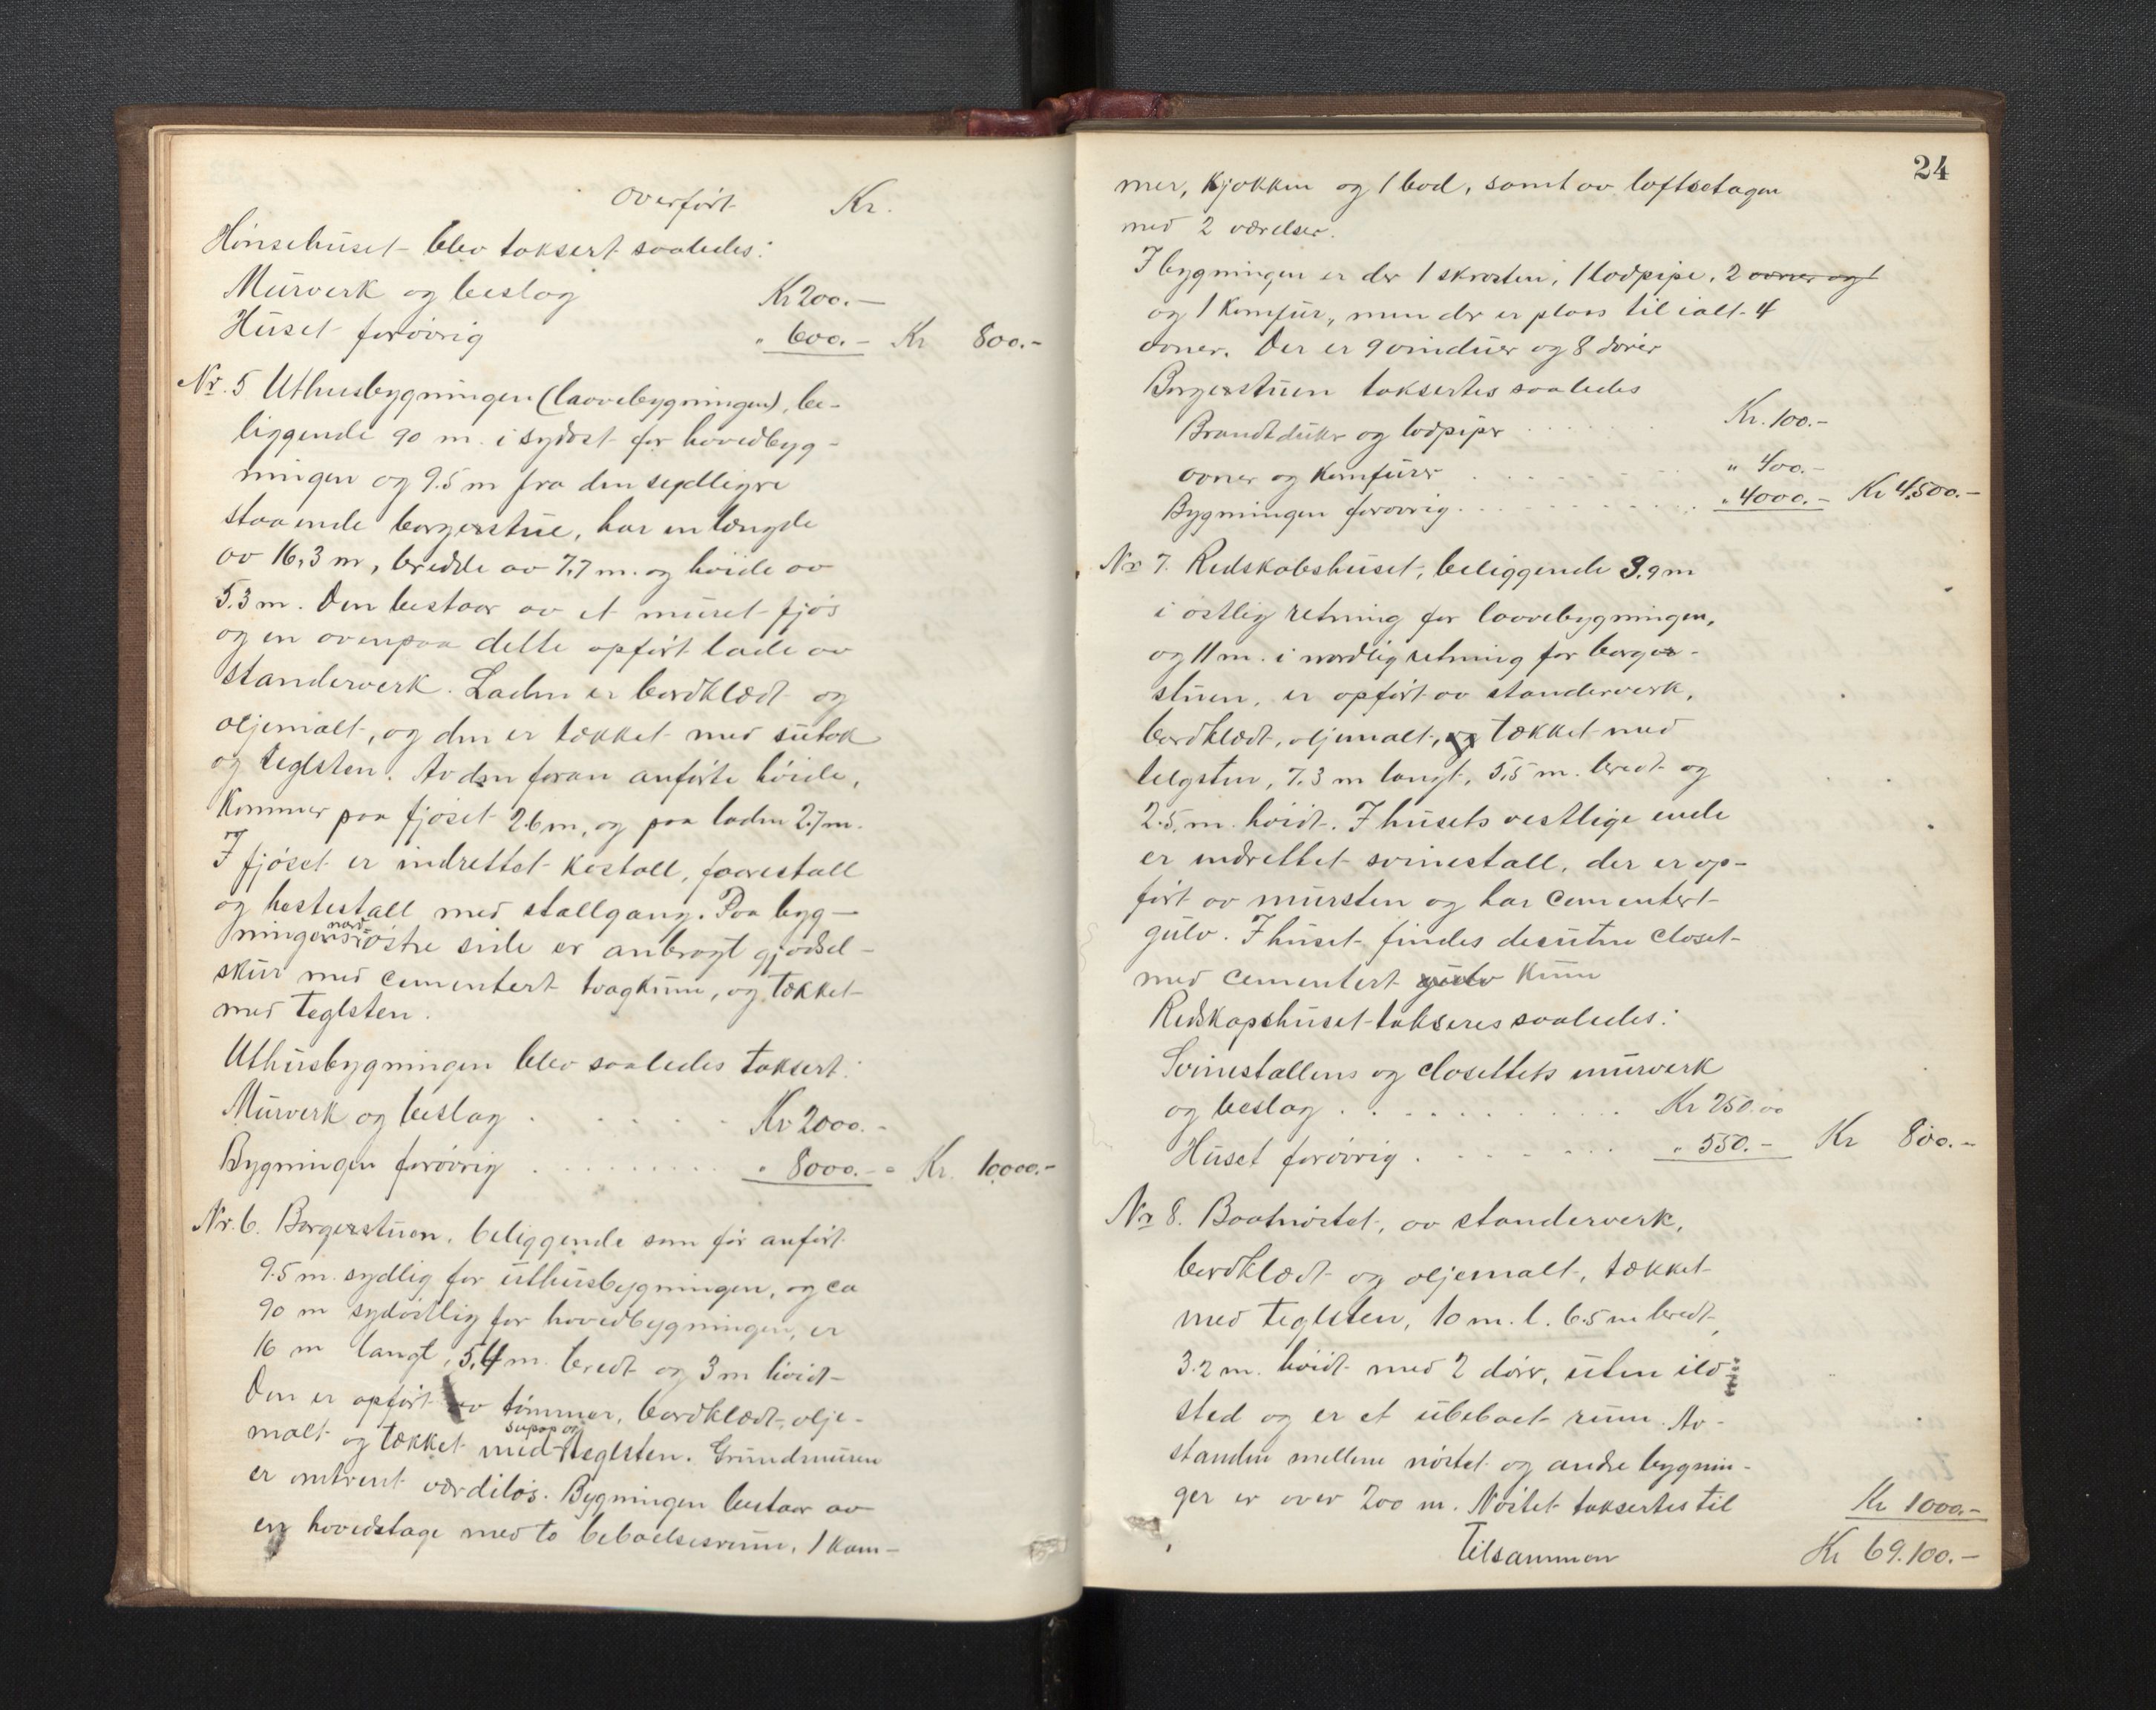 Overført Kr.
Hönsehuset blev taksert saaledes:
Mürverk og beslag Kr 200.-
Hüset forøvrig " 600.- Kr 800.-
Nr. 5 Uthusbygningen (laavebygningen), be-
liggende 90 m. i sydøst for hovedbyg-
ningen og 9.5 m fra den sydligere
staaende borgerstue, har en længde
av 16,3 m, bredde av 7,7 m. og høide av
5.3 m. Den bestaar av et muret fjøs
og en ovenpaa dette opført lade av
standerverk. Laden er bordklædt og
oljemalt, og den er tækket med sutak
og teglsten. Av den foran anførte høide,
kommer paa fjøset 2.6 m, og paa laden 2.7 m.
I fjøset er indrettet kostall, faarestall
og hestestall med stallgang. Paa byg-
ningens nord-østre side er anbragt gjødsel-
skur med cementert tvagkum, og tækket
med teglsten.
Uthusbygningen blev saaledes taksert:
Mürverk og beslag . . . . Kr 2000.-
Bygningen forøvrig . . . . " 8000.- = Kr. 10000.-
Nr. 6. Borgerstuen, beliggende som før anført
9.5 m. sydlig for uthusbygningen, og ca
90 m sydøstlig for hovedbygningen, er
16 m langt, 5,4 m. bredt og 3 m høidt
Den er opført av tømmer, bordklædt, olje-
malt og tækket med supap og teglsten. Grundmuren
er omtrent værdiløs. Bygningen bestaar av
en hovedetage med to beboelsesrum, 1 kam-
24
mer, kjøkken og 1 bod, samt av loftsetagen
med 2 værelser.
I bygningen er der 1 skorsten, 1 lodpipe, 2 ovner og 1
og 1 komfur, men der er plass til ialt 4
ovner. Der er 9 vinduer og 8 dører
Borgerstuen taksertes saaledes
Brandtduker og lodpiper . . . . Kr. 100.-
ovner og komfurer . . . . " 400.-
Bygningen forøvrig . . . . " 4000.- Kr 4,500.-
Nr 7. Redskabshuset, beliggende 3.9 m
i østlig retning for laavebygningen,
og 11 m. i nordlig retning for borger-
stuen, er opført av standerverk,
bordklædt, oljemalt, og tækket med
telgsten, 7.3 m langt, 5,5 m. bredt og
2.5, m. høidt. I husets vestlige ende
er indrettet svinestall, der er op-
ført av mursten og har cementert
gulv. I huset findes desuten closet
med cementert gulv kum
Redskapshuset takseres saaledes:
Svinestallens og closettets murverk
og beslag . . . . Kr 250.00
Huset forøvrig . . . . " 550.- Kr 800.-
Nr 8. Baatnøstet, av standerverk,
bordklædt og oljemalt, tækket
med teglsten, 10 m. l. 6.5 m bredt,
3.2 m. høidt med 2 dører, uten ild-
sted og er et ubeboet rum. Av-
standen mellem nøstet og andre bygnin-
ger er over 200 m. Nøstet taksertes til Kr 1000.-
Tilsammen Kr 69.100.-